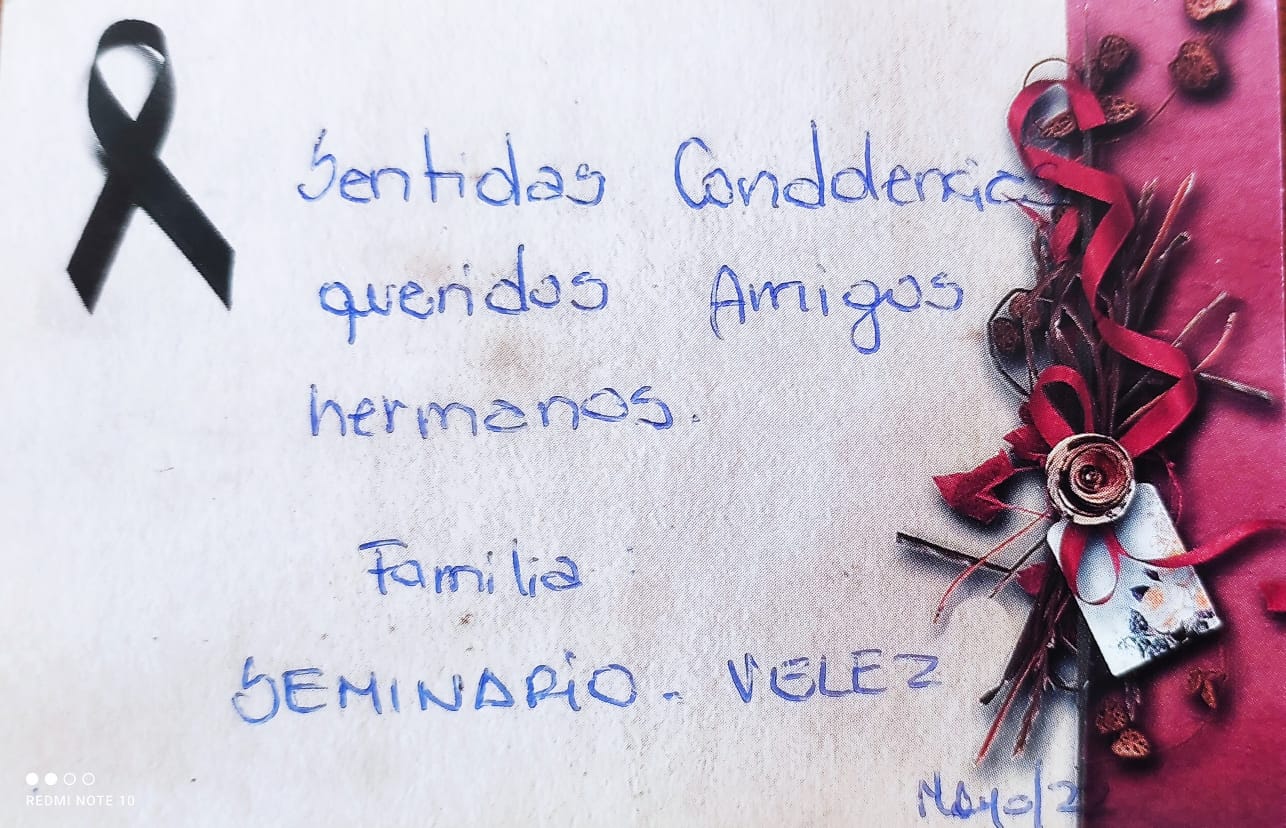 Sentidas Condolencias
queridos Amigos
hermanos.
Familia :
SEMINARIO - VELEZ
Mayo/22
REDMI NOTE 10